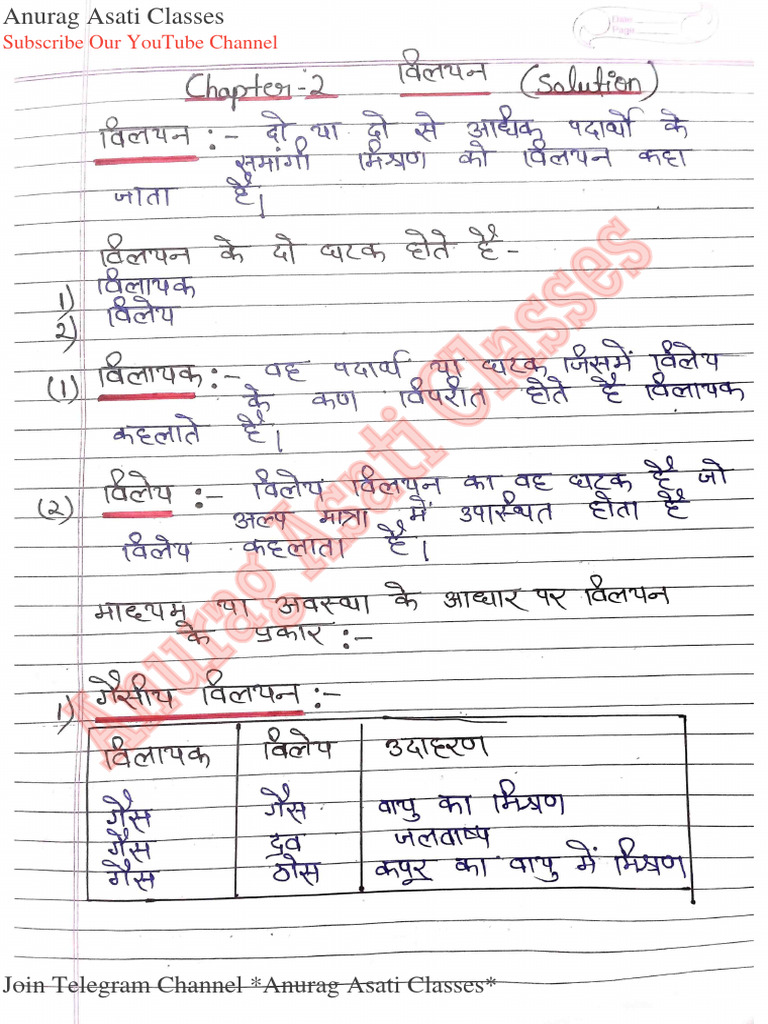 Anurag Asati Classes
Subscribe Our YouTube Channel
Date
Page
Chapter-2 विलयन (Solution)
विलयन :- दो या दो से अधिक पदार्थो के
समांगी मिश्रण को विलयन कहा
जाता है।
विलयन के दो घटक होते है -
1) विलायक
2) विलेय
(1) विलायक :- वह पदार्थ या घटक जिसमें विलेय
के कण विपरीत होते है विलायक
कहलाते है।
(2) विलेय :- विलेय विलयन का वह घटक है जो
अल्प मात्रा में उपास्थित होता है
विलेय कहलाता है।
माध्यम या अवस्था के आधार पर विलयन
के प्रकार :-
1) गैसीय विलयन :-
विलायक विलेय उदाहरण
गैस गैस वायु का मिश्रण
गैस द्रव जलवाष्प
गैस ठोस कपूर का वायु में मिश्रण
Anurag Asati Classes
Join Telegram Channel *Anurag Asati Classes*